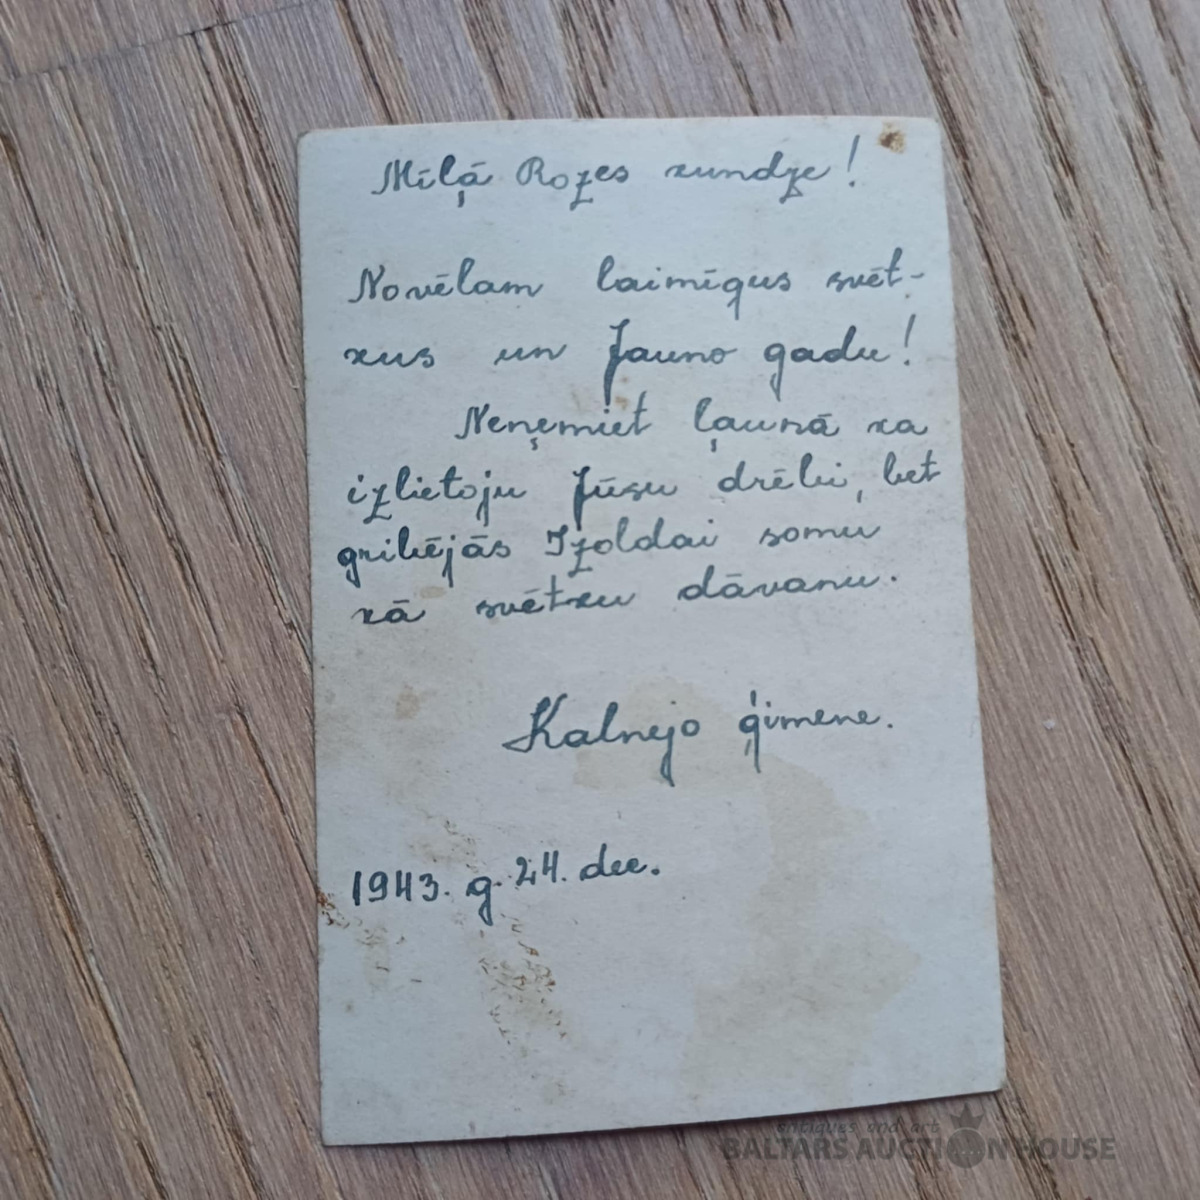 Mīļā Rozes kundze!
Novēlam laimīgus svēt-
kus un Jauno gadu!
Neņemiet ļaunā ka
izlietoju Jūsu drēbi, bet
gribējās Izoldai somu
kā svētku dāvanu.
Kalnejo ģimene.
1943. g. 24. dec.
antiques and art
BALTARS AUCTION HOUSE